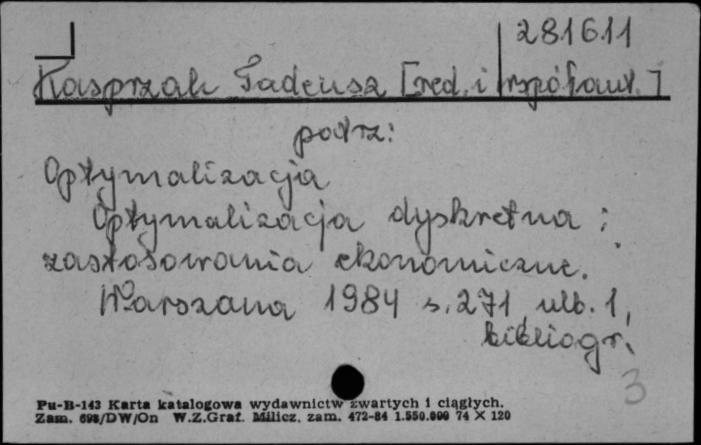 281611
Kasprzak Tadeusz [red. i współaut.]
patrz:
Optymalizacja
Optymalizacja dyskretna :
zastosowania ekonomiczne.
Warszawa 1984 s. 271, ulb. 1,
bibliogr.
3
Pu-B-143 Karta katalogowa wydawnictw zwartych i ciągłych.
Zam. 698/DW/On W.Z.Graf. Milicz. zam. 472-84 1.550.000 74 X 120